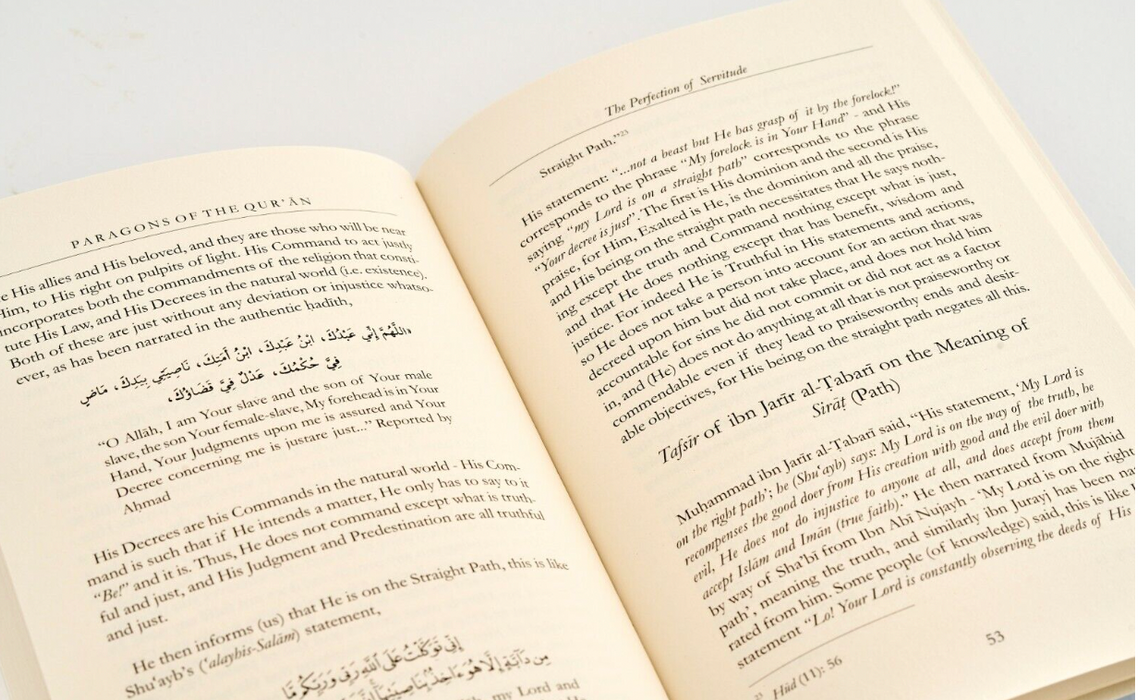 PARAGONS OF THE QUR'ĀN
His allies and His beloved, and they are those who will be near
Him, to His right on pulpits of light. His Command to act justly
incorporates both the commandments of the religion that consti-
tute His Law, and His Decrees in the natural world (i.e. existence).
Both of these are just without any deviation or injustice whatso-
ever, as has been narrated in the authentic ḥadīth,
«اللَّهُمَّ إِنِّي عَبْدُكَ، ابْنُ عَبْدِكَ، ابْنُ أَمَتِكَ، نَاصِيَتِي بِيَدِكَ، مَاضٍ
فِيَّ حُكْمُكَ، عَدْلٌ فِيَّ قَضَاؤُكَ،
"O Allāh, I am Your slave and the son of Your male
slave, the son Your female-slave, My forehead is in Your
Hand, Your Judgments upon me is assured and Your
Decree concerning me is justare just..." Reported by
Ahmad
His Decrees are his Commands in the natural world - His Com-
mand is such that if He intends a matter, He only has to say to it
"Be!" and it is. Thus, He does not command except what is truth-
ful and just, and His Judgment and Predestination are all truthful
and just.
He then informs (us) that He is on the Straight Path, this is like
Shu'ayb's ('alayhis-Salām) statement,
إِنِّي تَوَكَّلْتُ عَلَى اللَّهِ رَبِّي وَرَبِّكُم مَّا
مِن دَابَّةٍ إِلَّا هُوَ ءَاخِذٌ بِنَاصِيَتِهَا إِنَّ
my Lord and
The Perfection of Servitude
Straight Path."²³
His statement: "...not a beast but He has grasp of it by the forelock!"
corresponds to the phrase "My forelock is in Your Hand" - and His
saying "my Lord is on a straight path" corresponds to the phrase
"Your decree is just". The first is His dominion and the second is His
praise, for Him, Exalted is He, is the dominion and all the praise,
and His being on the straight path necessitates that He says noth-
ing except the truth and Command nothing except what is just,
and that He does nothing except that has benefit, wisdom and
justice. For indeed He is Truthful in His statements and actions,
so He does not take a person into account for an action that was
decreed upon him but did not take place, and does not hold him
accountable for sins he did not commit or did not act as a factor
in, and (He) does not do anything at all that is not praiseworthy or
commendable even if they lead to praiseworthy ends and desir-
able objectives, for His being on the straight path negates all this.
Tafsīr of ibn Jarīr al-Ṭabarī on the Meaning of
Sirāṭ (Path)
Muḥammad ibn Jarīr al-Ṭabarī said, "His statement, 'My Lord is
on the right path'; he (Shu'ayb) says: My Lord is on the way of the truth, he
recompenses the good doer from His creation with good and the evil doer with
evil, He does not do injustice to anyone at all, and does accept from them
accept Islām and Imān (true faith)." He then narrated from Mujāhid
by way of Sha'bī from Ibn Abī Nujayh - 'My Lord is on the right
path', meaning the truth, and similarly ibn Jurayj has been
rated from him. Some people (of knowledge) said, this is like
statement "Lo! Your Lord is constantly observing the deeds of His
23 Hūd (11): 56
53